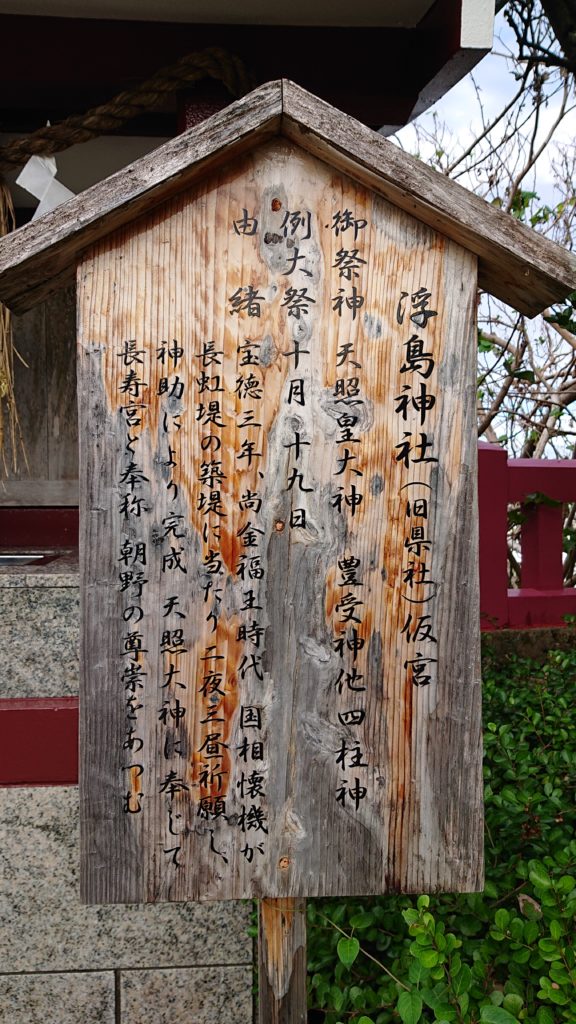 浮島神社(旧県社)仮宮
御祭神 天照皇大神 豊受神他四柱神
例大祭 十月十九日
由緒 宝徳三年、尚金福王時代 国相懐機が
長虹堤の築堤に当たり二夜三昼祈願し、
神助により完成 天照大神に奉じて
長寿宮と奉称 朝野の尊崇をあつむ